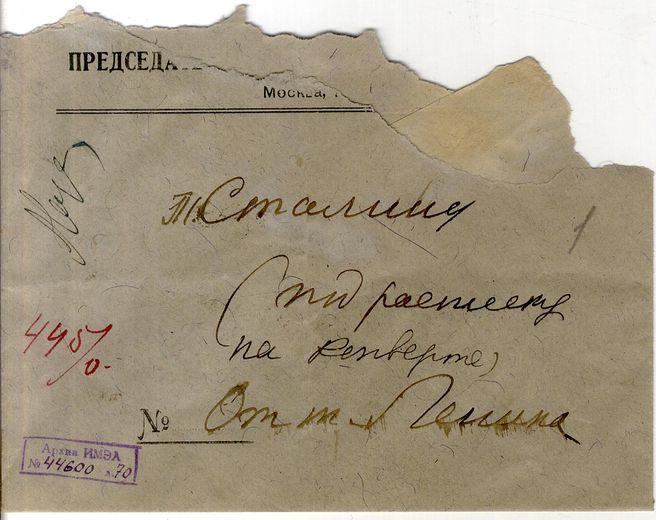 ПРЕДСЕДАТЕ
Москва,
т. Сталину
1
(под расписку
на конверте)
445/о.
№ От т. Ленина
Архив ИМЭЛ
№ 44600 л. 70